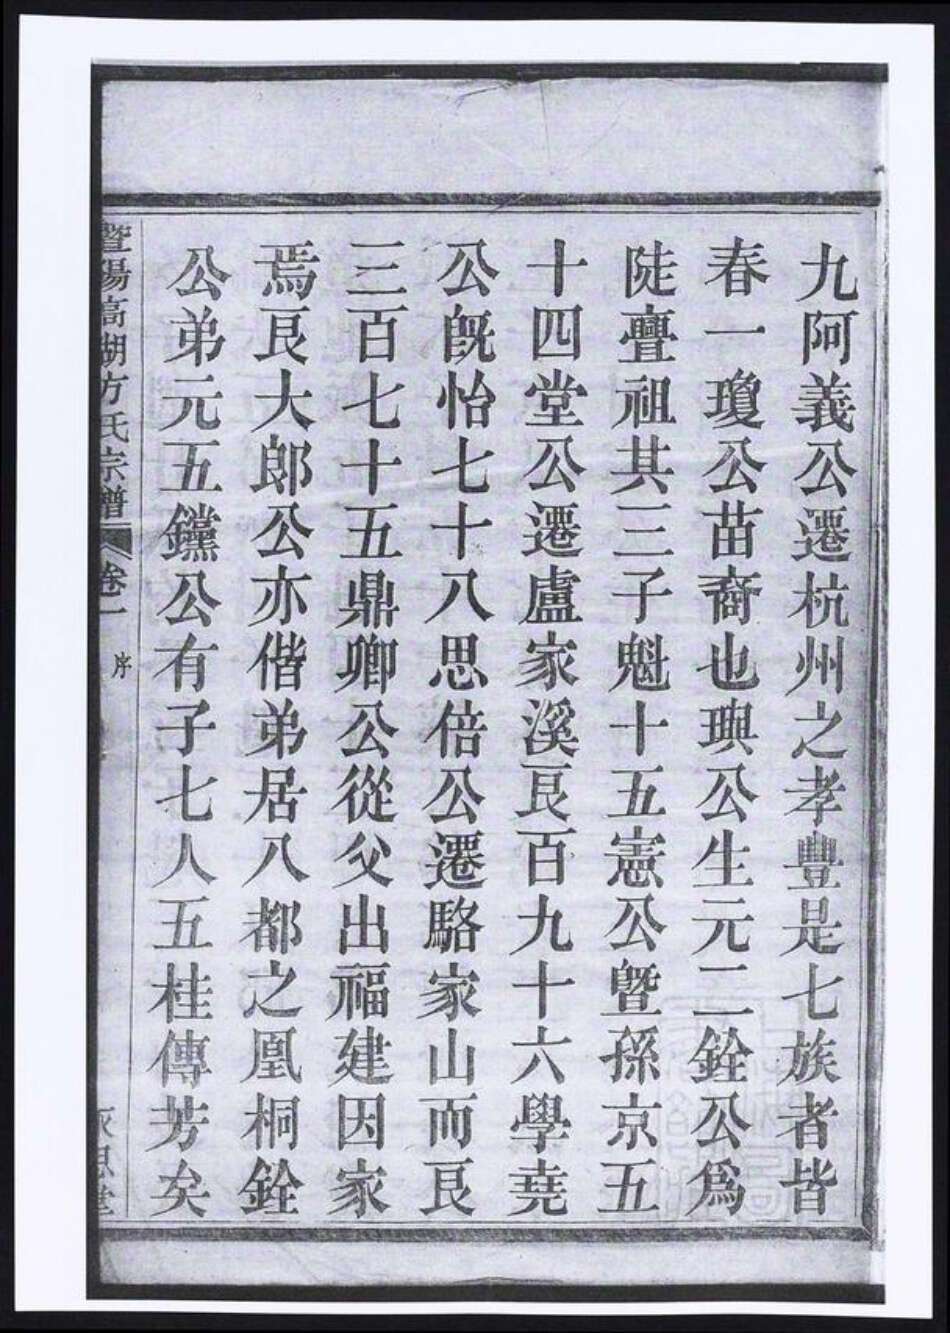 九阿義公遷杭州之孝豐是七族者皆
春一瓊公苗裔也璵公生元二銓公爲
陡亹祖其三子魁十五憲公暨孫京五
十四堂公遷盧家溪艮百九十六學堯
公旣怡七十八思倍公遷駱家山而艮
三百七十五鼎卿公從父出福建因家
焉艮大郎公亦偕弟居八都之凰桐銓
公弟元五鑵公有子七人五桂傳芳矣
暨陽高湖方氏宗譜 卷一 序